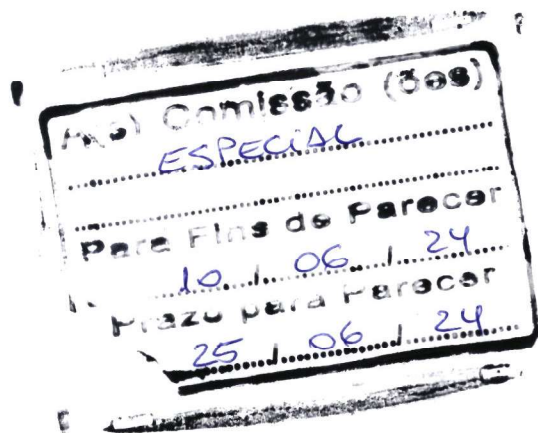 A(s) Comissão (ões)
ESPECIAL
Para Fins de Parecer
10 / 06 / 24
Prazo para Parecer
25 / 06 / 24